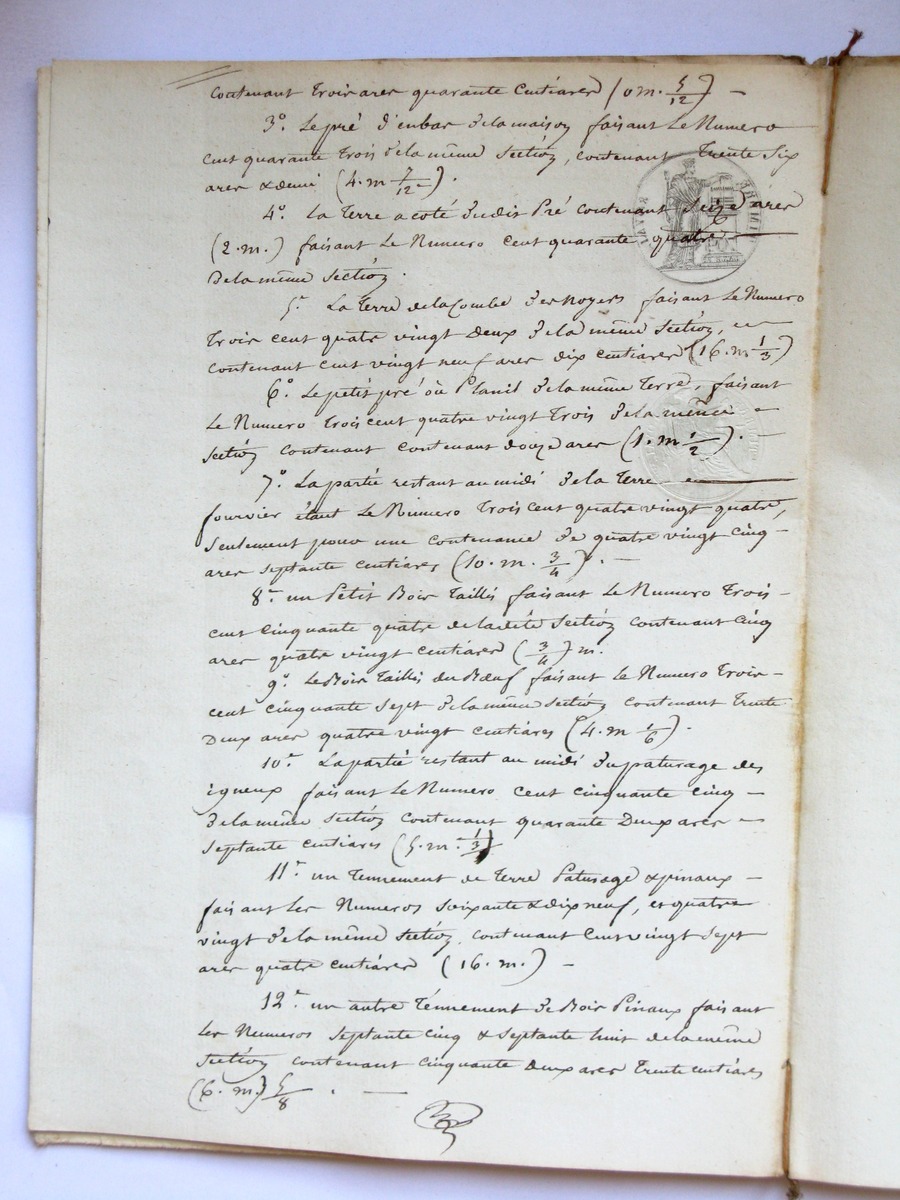 contenant trois ares quarante centiares (0 m. 5/12) —
3° Le pré d'enbas de la maison faisant Le Numero
cent quarante trois de la même section, contenant trente six
ares & demi (4. m 7/12).
4° La Terre a coté dudit Pré contenant seize ares
(2. m.) faisant Le Numero cent quarante quatre
de la même section.
5° La Terre de la Combe des noyers faisant Le Numero
trois cent quatre vingt deux de la même section, —
contenant cent vingt neuf ares dix centiares (16. m 1/3)
6° Le petit pré où Planil de la même Terre, faisant
Le Numero trois cent quatre vingt trois de la même —
section contenant contenant douze ares (1. m 1/2). —
7° La partie restant au midi de la Terre —
fourvier étant Le Numero trois cent quatre vingt quatre,
seulement pour une contenance de quatre vingt cinq —
ares septante centiares (10. m. 3/4). —
8° un Petit Bois taillis faisant Le Numero trois —
cent cinquante quatre de la dite section contenant cinq
ares quatre vingt centiares (3/4) m.
9° Le Bois taillis du Bœuf faisant Le Numero trois —
cent cinquante sept de la même section contenant trente
deux ares quatre vingt centiares (4. m 1/6).
10° La partie restant au midi du paturage des
igneux faisant Le Numero cent cinquante cinq —
de la même section contenant quarante deux ares —
septante centiares (5. m. 1/3)
11° un Tennement de Terre Paturage & pinaux —
faisant Les Numeros soixante & dix neuf, et quatre
vingt de la même section, contenant cent vingt sept
ares quatre centiares (16. m.) —
12° un autre Tennement de Bois Pinaux faisant
Les Numeros septante cinq & septante huit de la même
section contenant cinquante deux ares trente centiares
(6. m.) 5/8. —